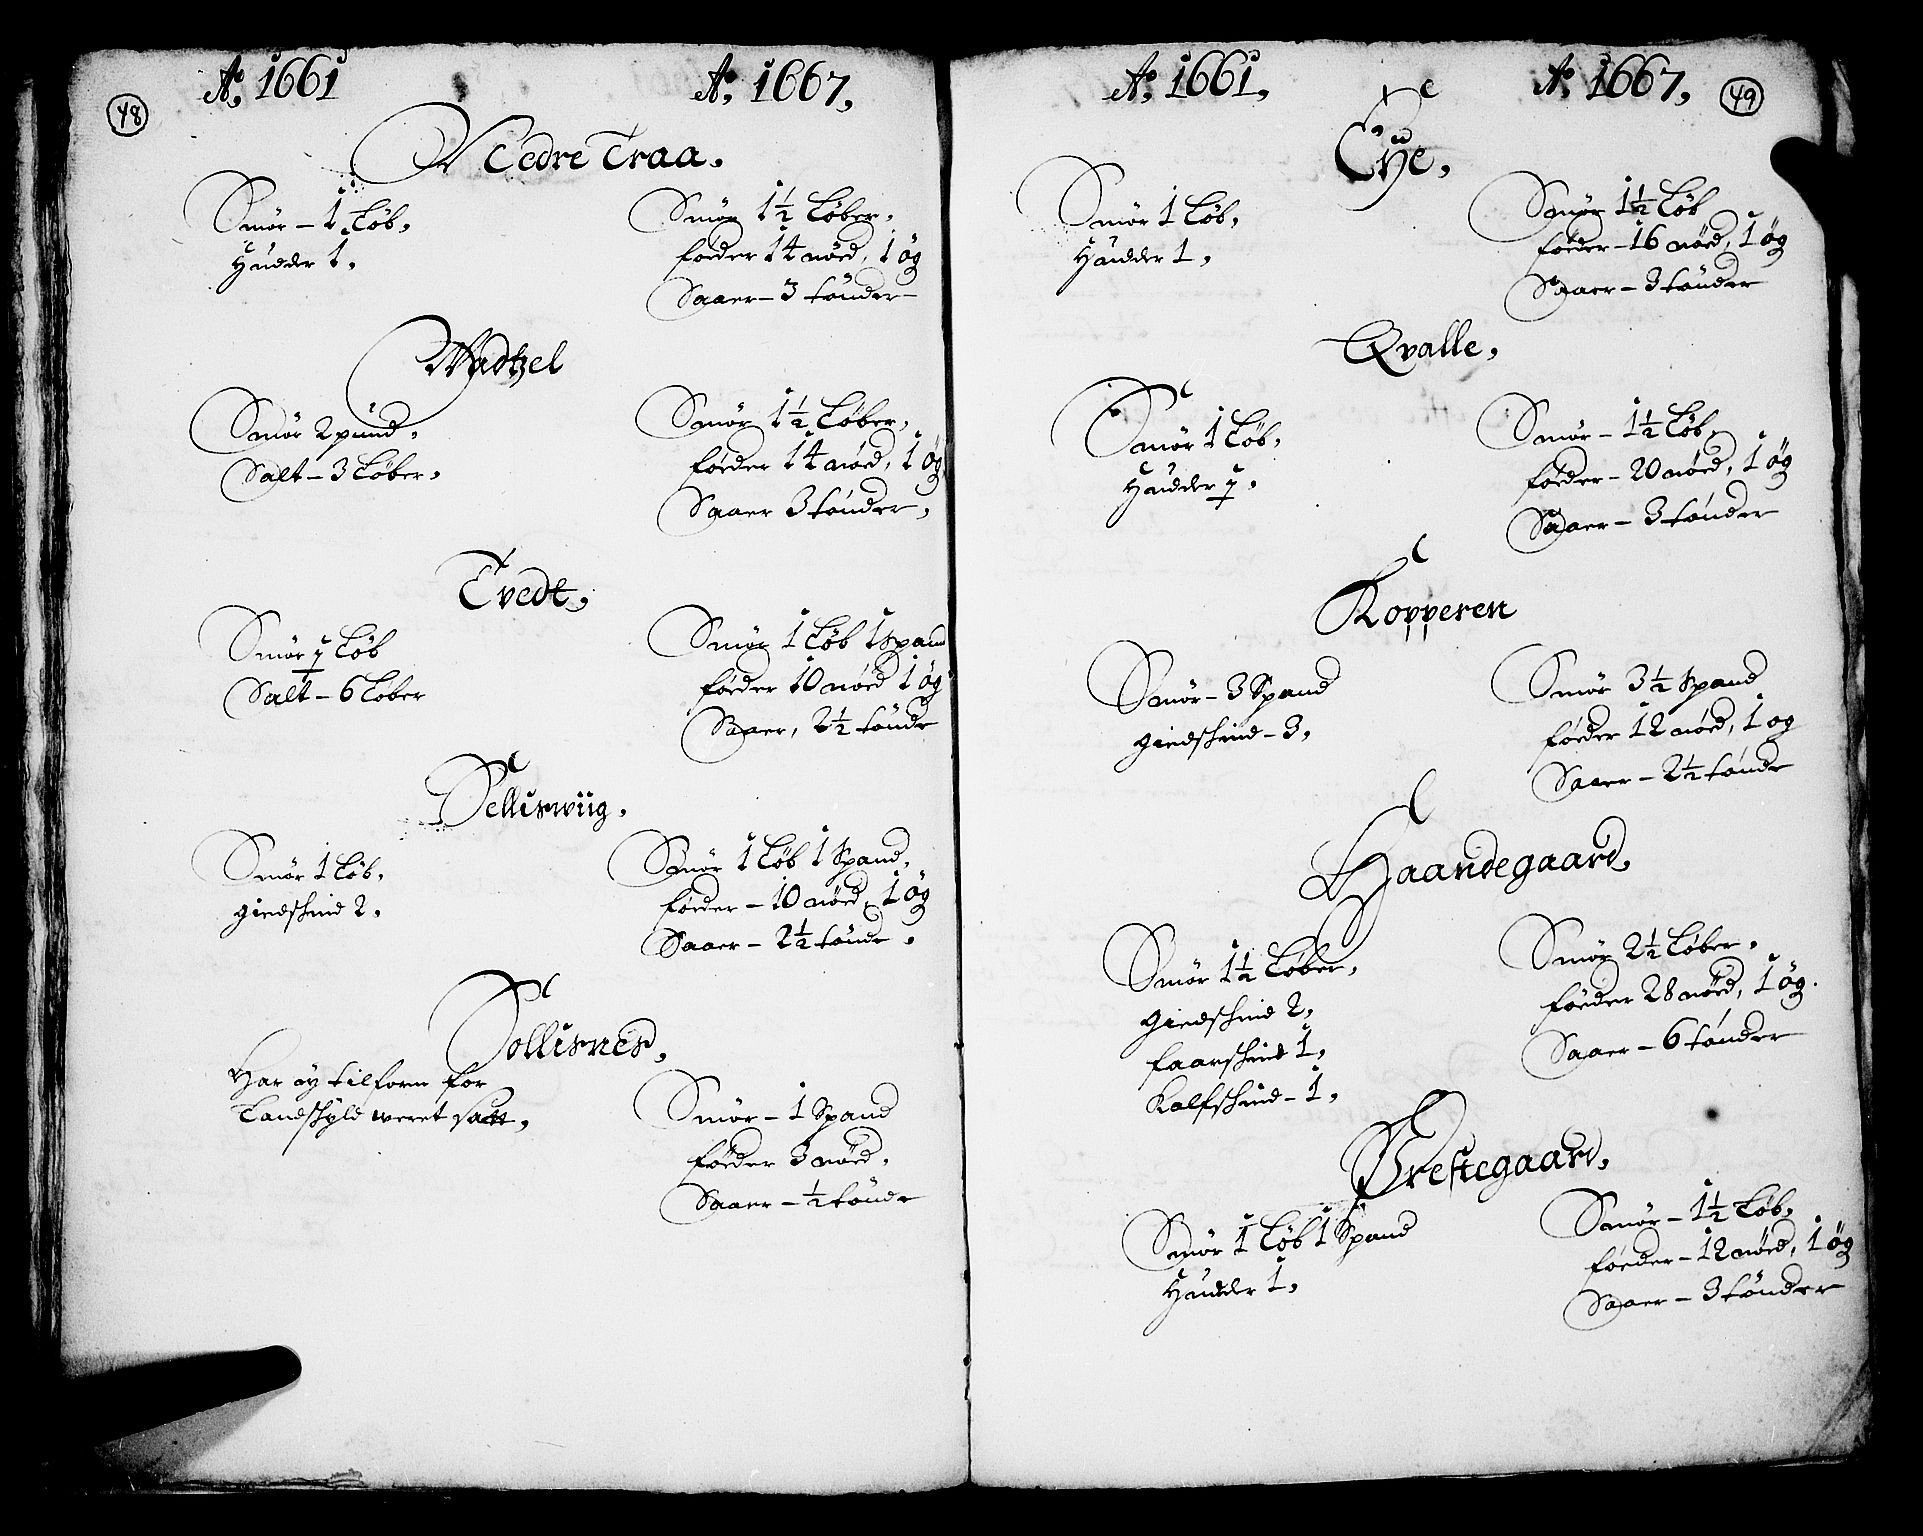 48
Aº. 1661
Aº. 1667,
Nedre Traa.
Smör – 1 Løb,
Huder 1.
Smör 1½ Løber,
föeder 14 nöed, 1 øg
Saaer – 3 tönder –
Wadtzel
Smör 2 pund,
Salt – 3 Løber,
Smör 1½ Løber,
föeder 14 nöed, 1 øg
Saaer 3 tönder,
Tvedt,
Smör ½ Løb
Salt – 6 Løber
Smör 1 Løb 1 Spand
föeder 10 nöed 1 øg
Saaer, 2½ tönde
Selliswiig,
Smör 1 Løb,
giedskind 2,
Smör 1 Løb 1 Spand,
föeder – 10 nöed, 1 øg
Saaer – 2½ tönde,
Sollisnes,
Har ey tilforn for
Landskyld weret satt,
Smör – 1 Spand
föeder 3 nöed,
Saaer – ½ tönde
Aº. 1661,
Aº. 1667,
49
Eye,
Smör 1 Løb,
Huder 1,
Smör 1½ Løb
föeder – 16 nöed, 1 øg
Saaer – 3 tönder
Qvalle,
Smör 1 Løb,
Huder ½,
Smör – 1½ Løb,
föeder – 20 nöed, 1 øg
Saaer – 3 tönder
Kopperen
Smör – 3 Spand
giedskind – 3,
Smör 3½ Spand
föeder 12 nöed, 1 øg
Saaer – 2½ tönde
Haandegaard,
Smör 1½ Løber,
giedskind 2,
faarskind 1,
Kalfskind – 1,
Smör 2½ Løber,
föeder 28 nöed, 1 øg.
Saaer – 6 tönder
Prestegaard,
Smör 1 Løb 1 Spand
Huder 1,
Smör – 1½ Løb,
föeder – 12 nöed, 1 øg
Saaer – 3 tönder